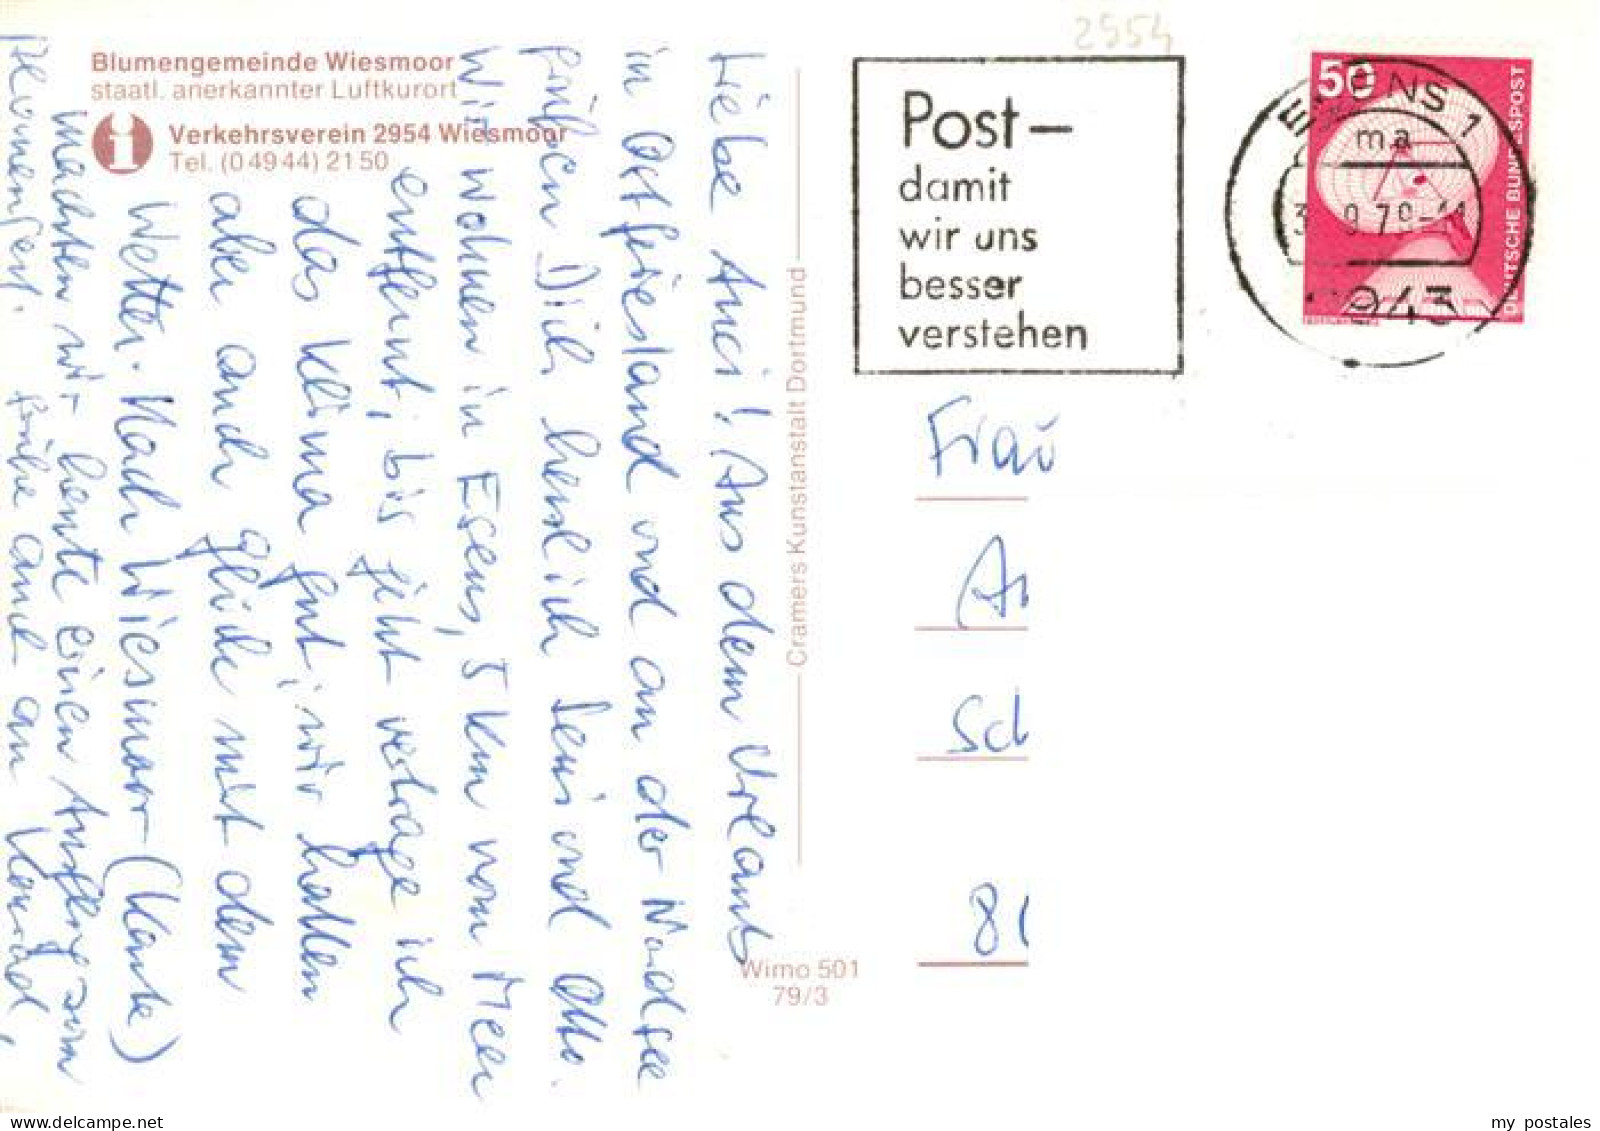 2954
Blumengemeinde Wiesmoor
staatl. anerkannter Luftkurort
Verkehrsverein 2954 Wiesmoor
Tel. (0 49 44) 21 50
Liebe Anci! Aus dem Urlaub
in Ostfriesland und an der Nordsee
grüßen Dich herzlich Leni und Otto.
Wir wohnen in Esens, 5 km vom Meer
entfernt; bis jetzt vertrage ich
das Klima gut; wir hatten
aber auch Glück mit dem
Wetter. Nach Wiesmoor (Karte)
machten wir heute einen Ausflug zum
Blumenfest.
Cramers Kunstanstalt Dortmund
Wimo 501
79/3
Post –
damit
wir uns
besser
verstehen
50
DEUTSCHE BUNDESPOST
ESENS 1
ma
9.79-11
2943
Frau
Sch